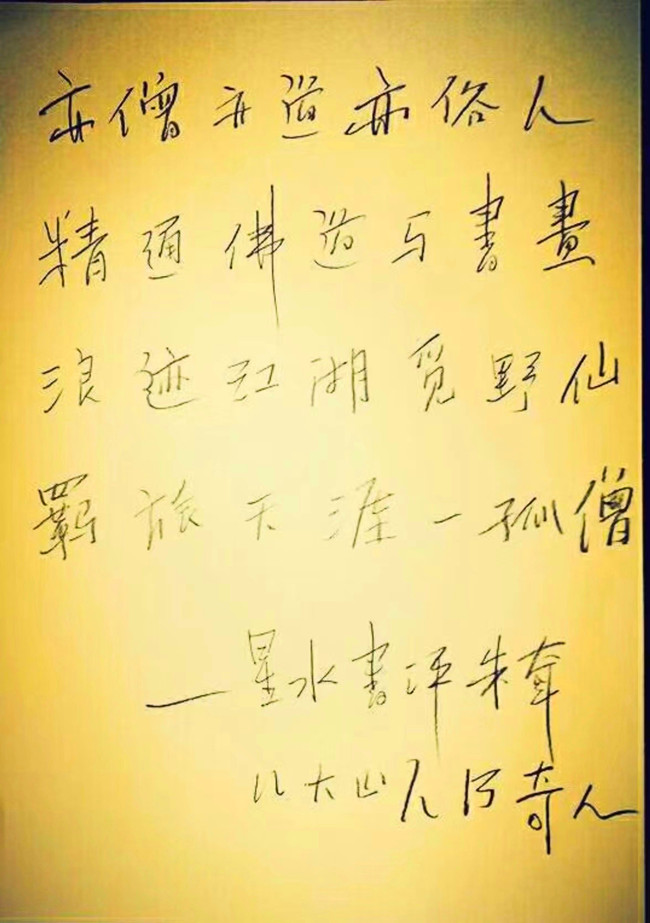 亦僧亦道亦俗人
精通佛道与書畫
浪迹江湖觅野仙
羁旅天涯一孤僧
—星水書评朱耷
八大山人乃奇人